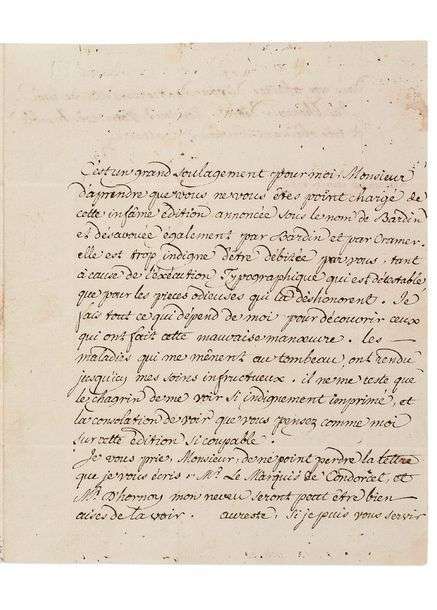 C'est un grand soulagement pour moi, Monsieur
d'aprendre que vous ne vous êtes point chargé de
cette infâme édition annoncée sous le nom de Bardin
et désavouée également par Bardin et par Cramer.
elle est trop indigne d'être débitée par vous, tant
à cause de l'exécution Typographique qui est détestable,
que pour les pieces odieuses qui la déshonorent. Je
fais tout ce qui dépend de moi pour découvrir ceux
qui ont fait cette mauvaise manœuvre. les
maladies qui me mênent au tombeau, ont rendu
jusqu'icy mes soins infructueux. il ne me reste que
le chagrin de me voir si indignement imprimé, et
la consolation de voir que vous pensez comme moi
sur cette édition si coupable.
Je vous prie, Monsieur, de ne point perdre la lettre
que je vous écris. Mr. Le Marquis de Condorcet, et
Mr. D'hornoy mon neveu seront peut être bien
aises de la voir. aureste, Si je puis vous servir